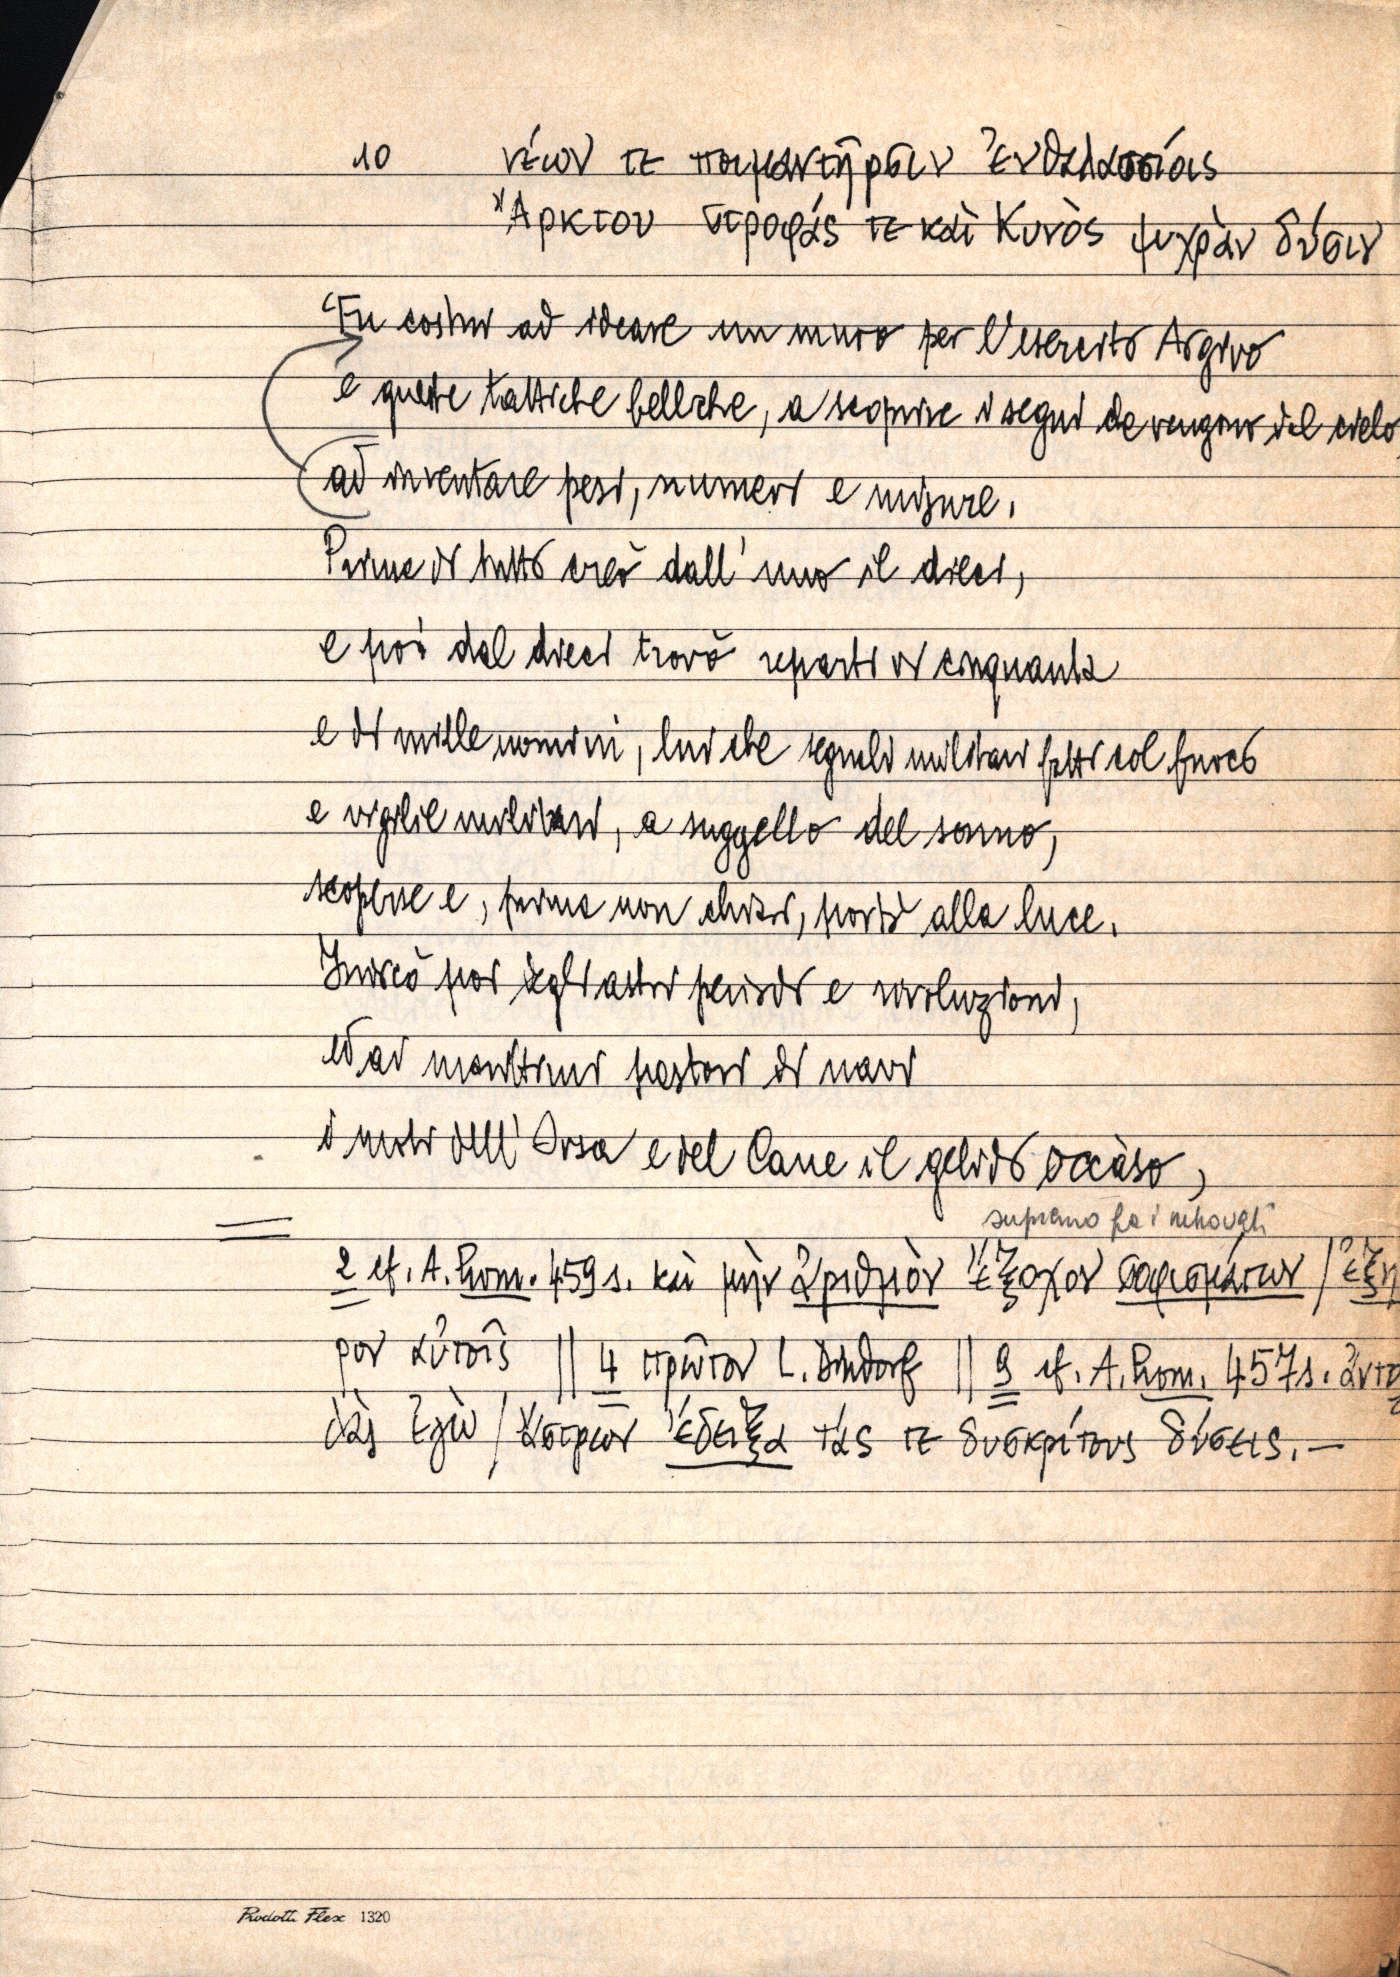 10 νέων τε ποιμαντῆρσιν ἐνθαλασσίοις
Ἄρκτου στροφάς τε καὶ Κυνὸς ψυχρὰν δύσιν
"Fu costui ad ideare un muro per l'esercito Argivo
e queste tattiche belliche, a scoprire i segni che vengono dal cielo,
ad inventare pesi, numeri e misure.
Prima di tutto creò dall'uno il dieci,
e poi dal dieci trovò reparti di cinquanta
e di mille uomini, lui che segnali militari fatti col fuoco
e vigilie militari, a suggello del sonno,
scoperse e, prima non chiari, portò alla luce.
Indicò poi degli astri periodi e rivoluzioni,
ed ai marittimi pastori di navi
i moti dell'Orsa e del Cane il gelido occàso,
supremo fra i ritrovati
2 cf. A. Prom. 459 s. καὶ μὴν ἀριθμὸν ἔξοχον σοφισμάτων / ἐξηῦ
ρον αὐτοῖς || 4 πρῶτον L. Dindorf || 9 cf. A. Prom. 457 s. ἀντο
λὰς ἐγὼ / ἄστρων ἔδειξα τάς τε δυσκρίτους δύσεις. —
Prodotti Flex 1320